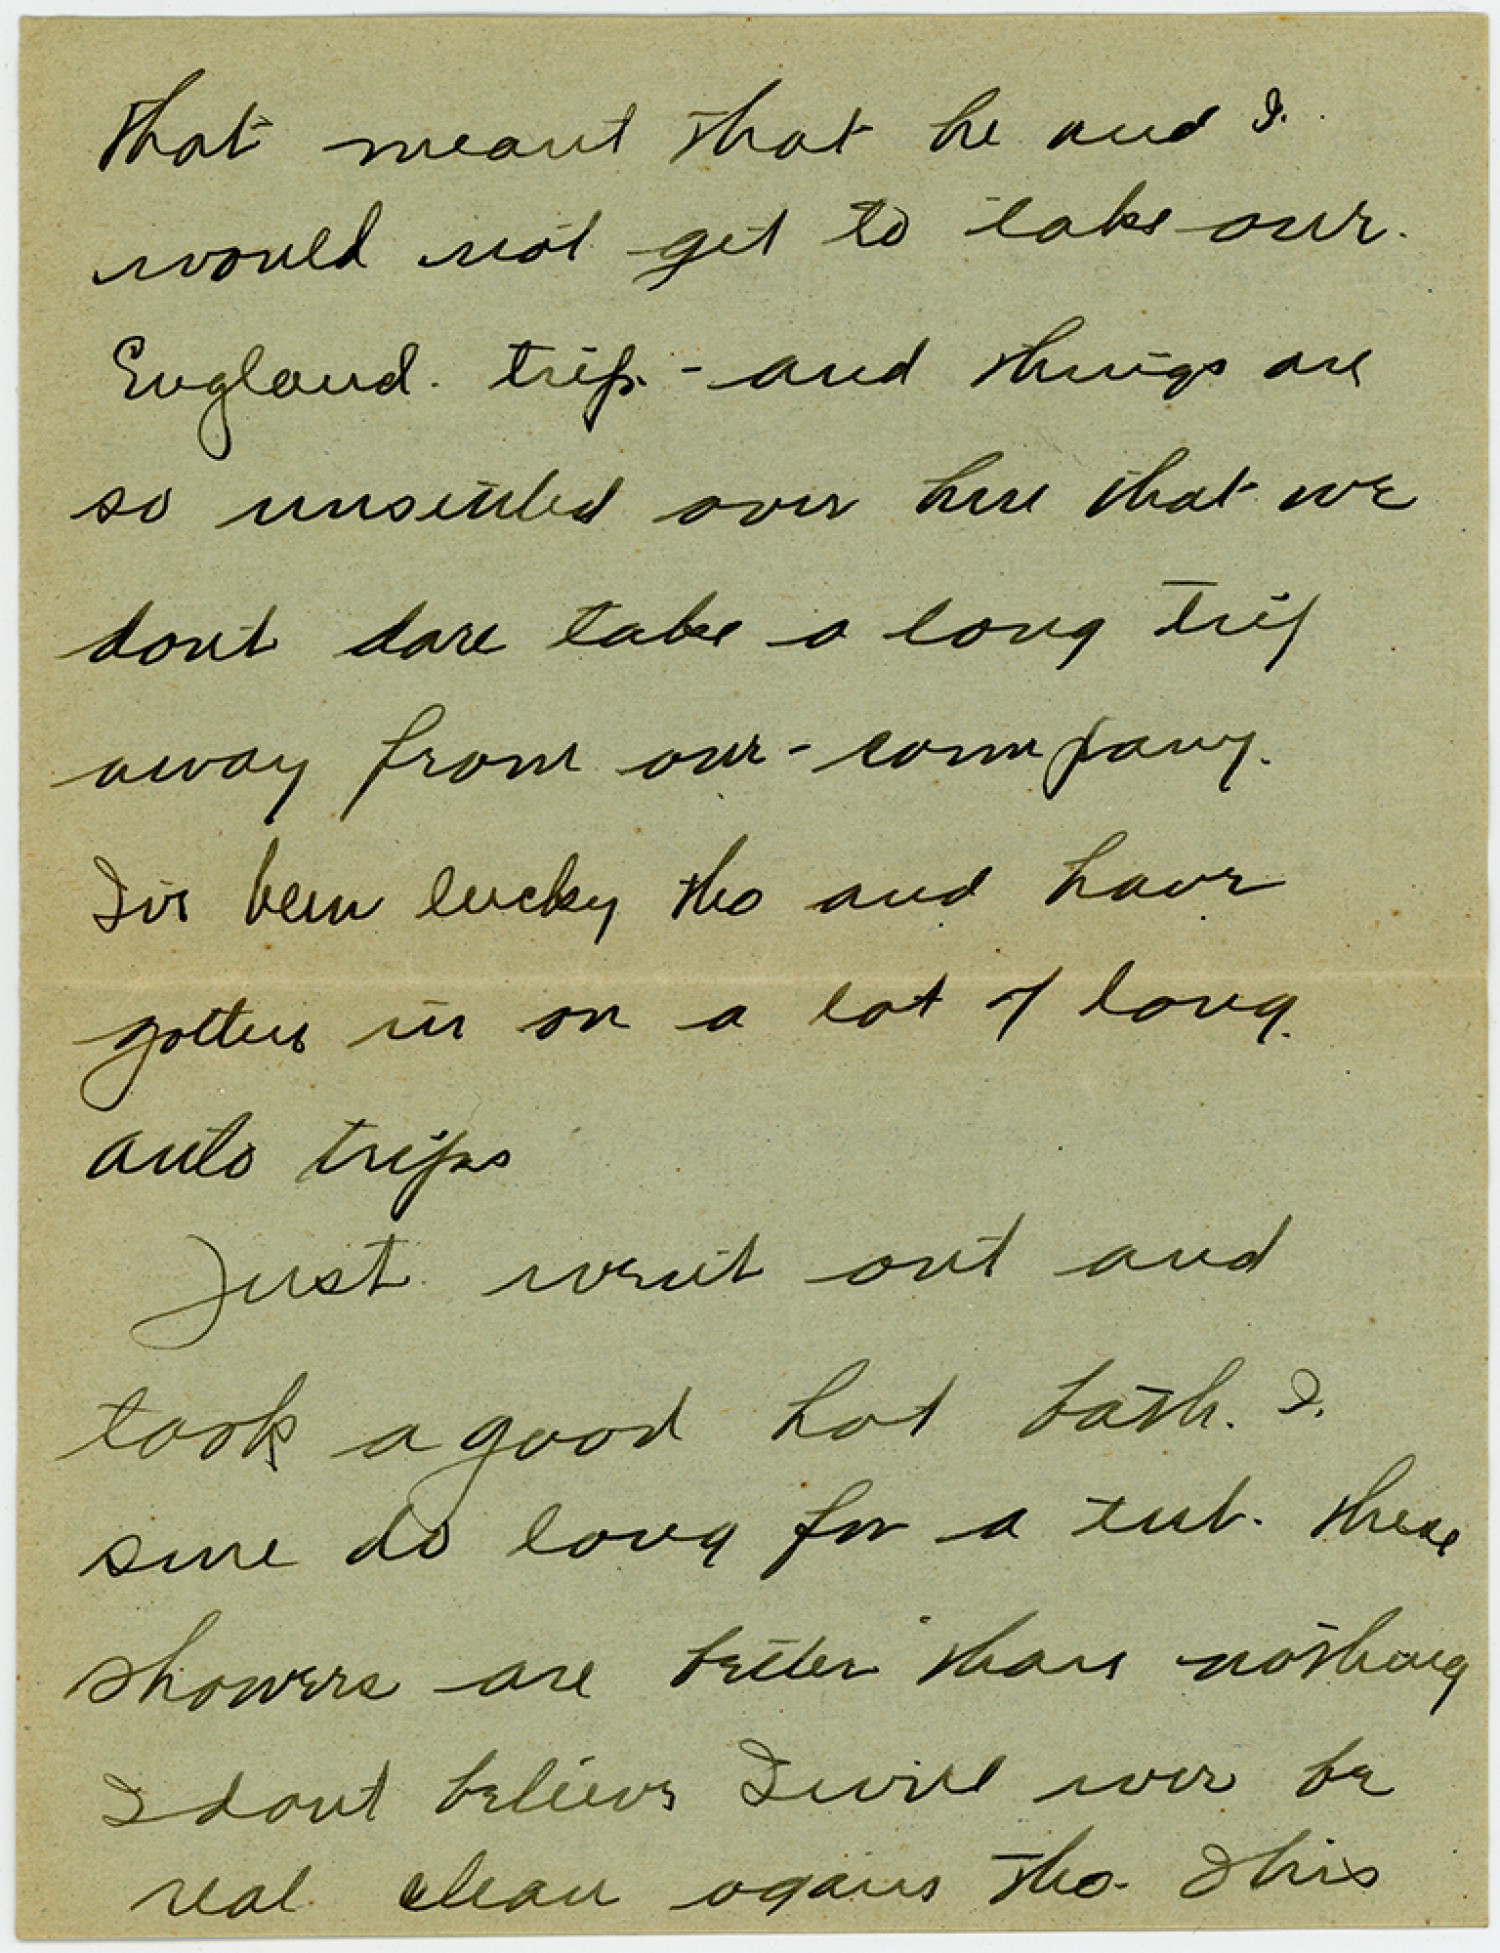 that meant that he and I.
would not get to take our.
England. trip. - and things are
so unsettled over here that we
dont dare take a long trip
away from our - company.
Ive been lucky tho and have
gotten in on a lot of long.
auto trips
Just went out and
took a good hot bath. I.
sure do long for a tub. these
showers are better than nothing
I dont believe I will ever be
real clean again tho. This